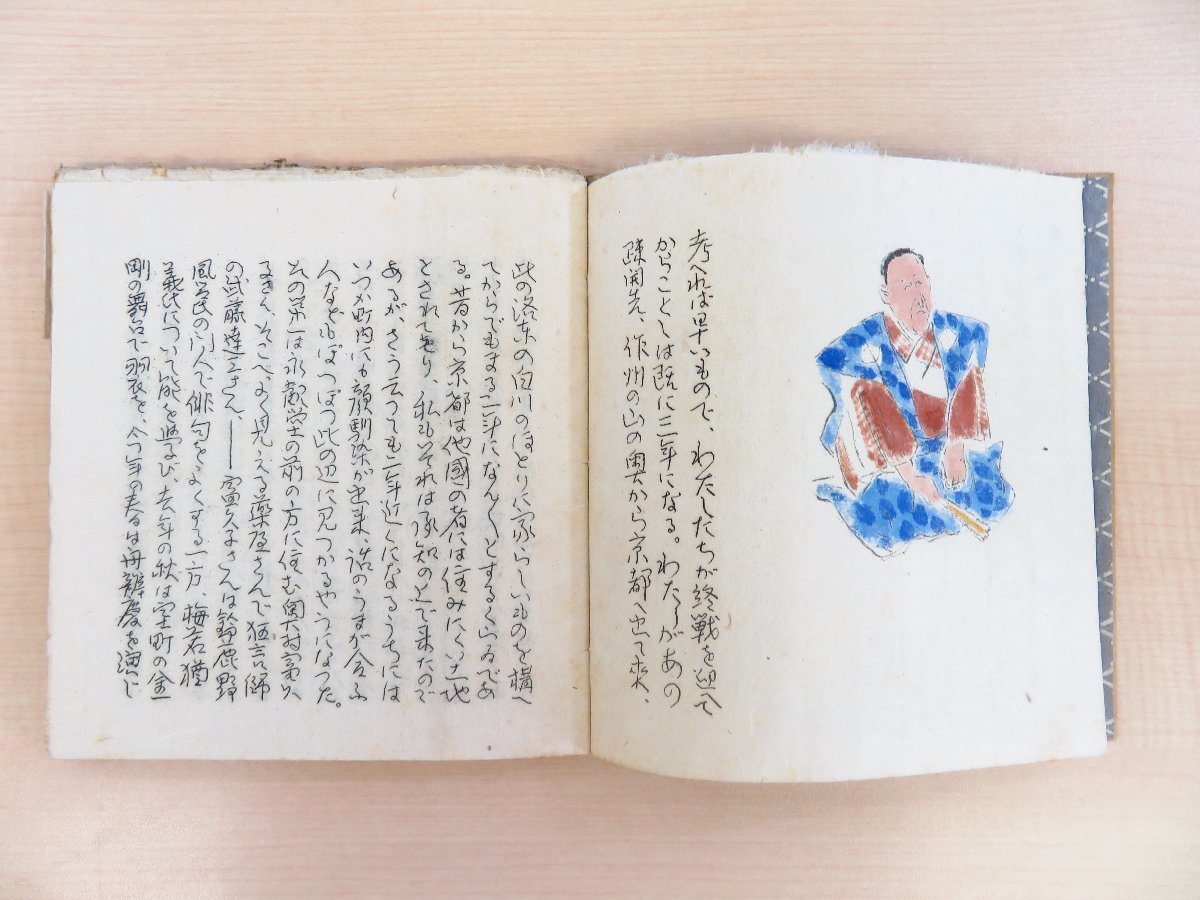 考へれば早いもので、わたしたちが終戦を迎へて
からことしは既に三年になる。わたしがあの
疎開先、作州の山の奥から京都へ出て来れ、
此の洛東の白川のほとりに家らしいものを構へ
てからでもまる二年になんなんとするくらゐであ
る。昔から京都は他國の者には住みにくい土地
とされてをり、私もそれは承知の上で来たので
あるが、さう云つても二年近くになるうちには
いつか町内にも顔馴染が出来、話のうまが合ふ
人などもぽつぽつ此の辺に見つかるやうになつた。
その第一は永観堂の前の方に住む奥村富久
るきん、そこへよく見える薬屋さんで狂言師
の武藤達三さん、――富久子さんは鈴鹿野
風呂氏の門人で俳句をよくする一方、梅若猶
義氏について能を学び、去年の秋は室町の金
剛の舞台で羽衣を、今年の春は舟辨慶を演じ